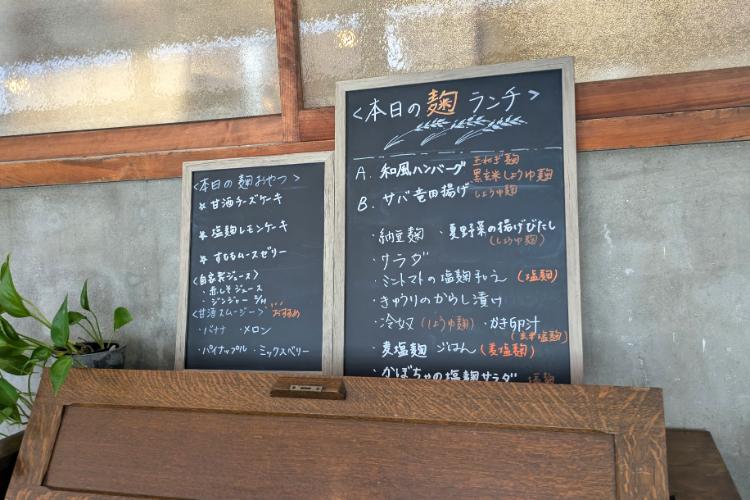 <本日の麹おやつ>
☆ 甘酒チーズケーキ
☆ 塩麹レモンケーキ
☆ すももムースゼリー
<自家製ジュース>
・赤しそジュース
・ジンジャー
<甘酒スムージー> おすすめ
・バナナ ・メロン
・パイナップル ・ミックスベリー
<本日の麹ランチ>
A. 和風ハンバーグ 玉ねぎ麹
黒玄米しょうゆ麹
B. サバ竜田揚げ しょうゆ麹
・納豆麹 ・夏野菜の揚げびたし
(しょうゆ麹)
・サラダ
・ミニトマトの塩麹和え (塩麹)
・きゅうりのからし漬け
・冷奴 (しょうゆ麹) ・かき卵汁
(玉ねぎ塩麹)
・麦塩麹 ごはん (麦塩麹)
・かぼちゃの塩麹サラダ 塩麹